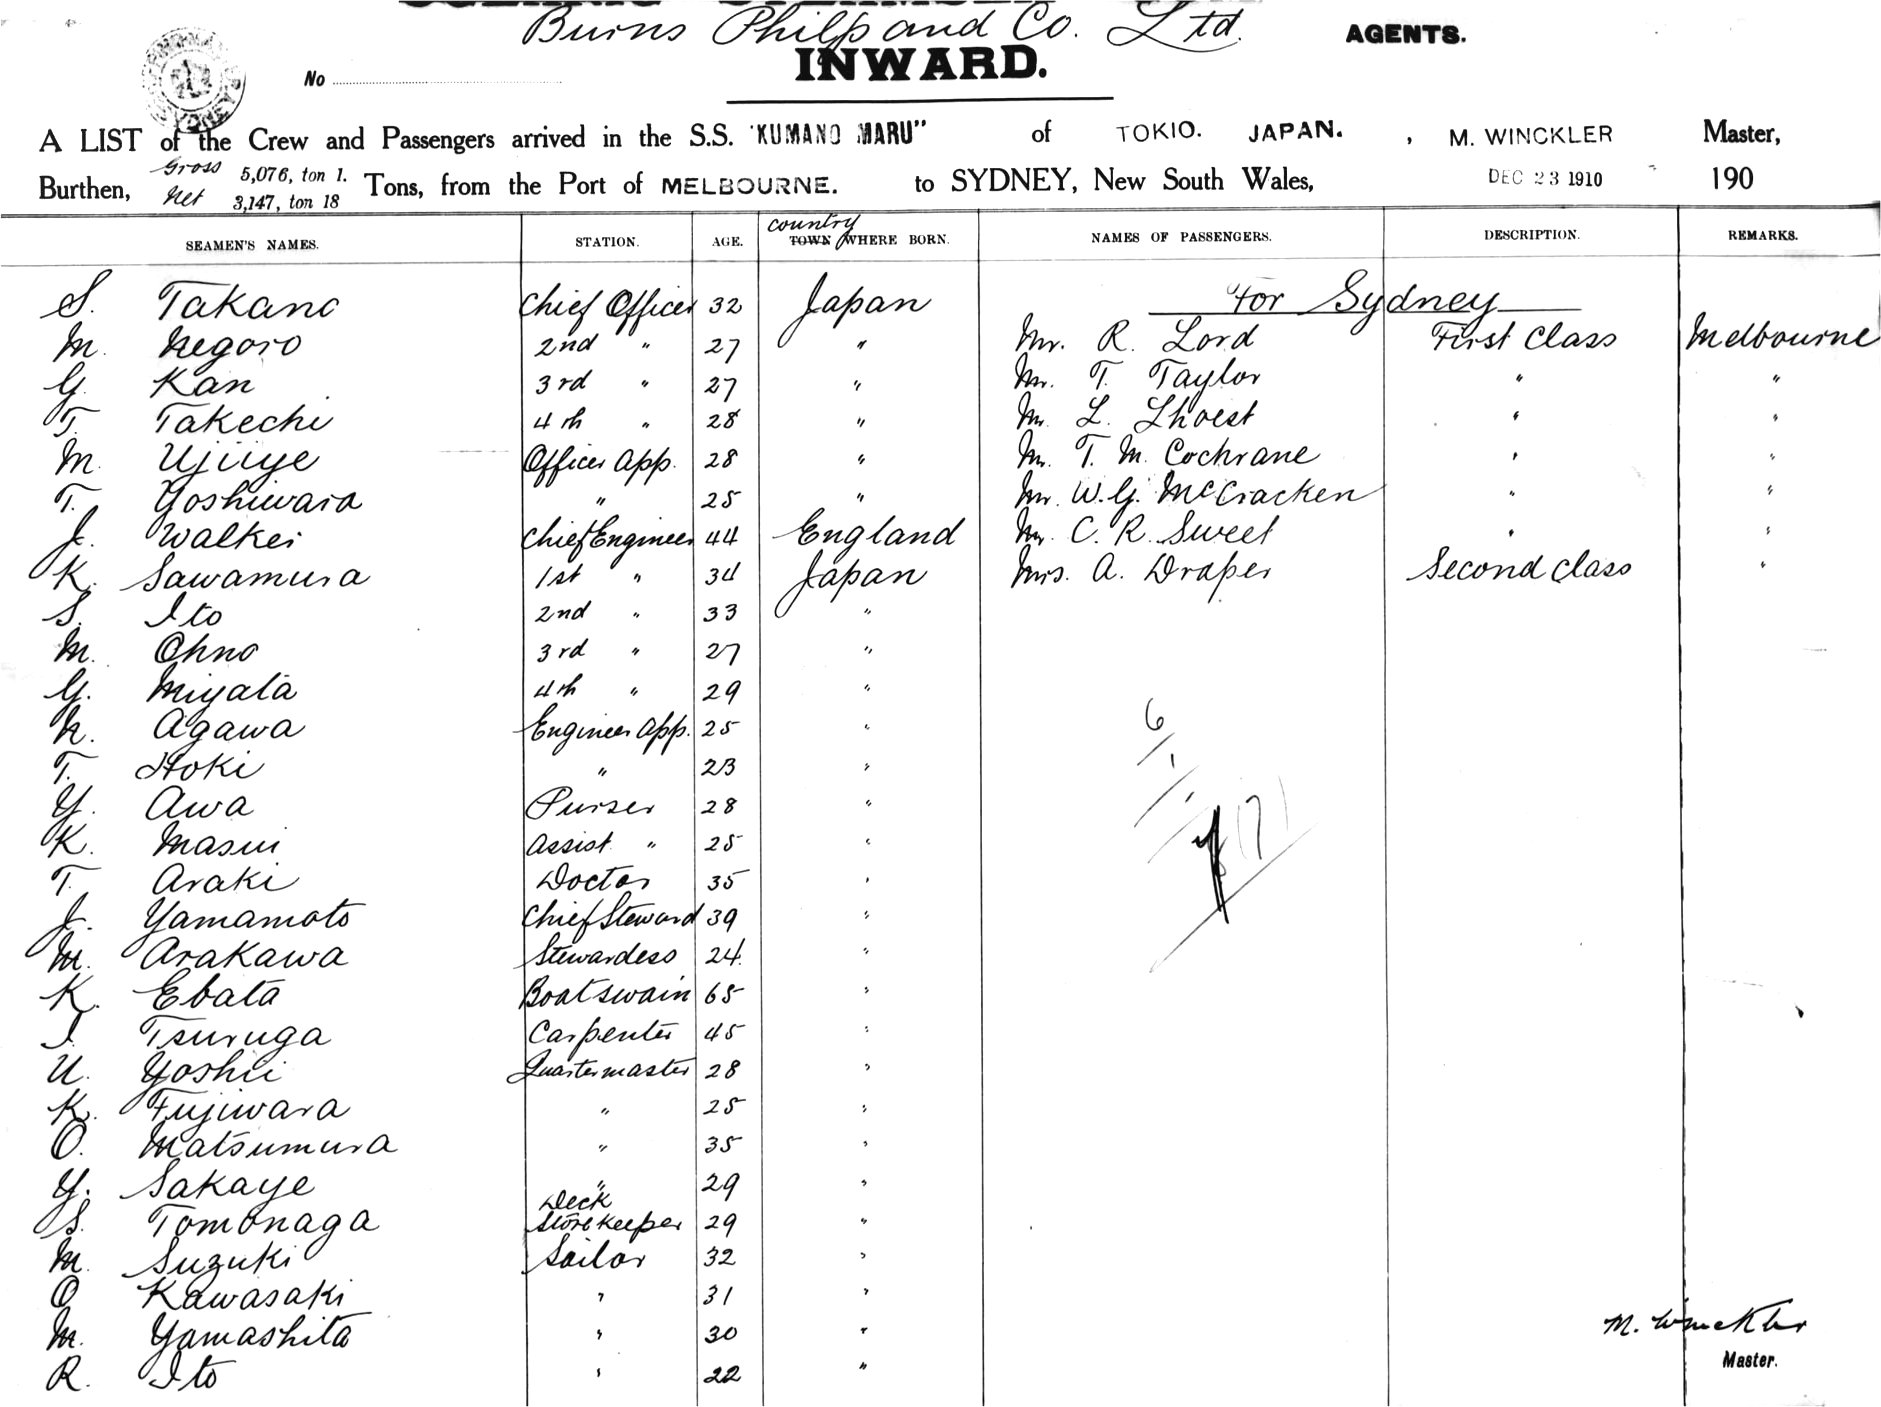 Burns Philp and Co. Ltd. AGENTS.
INWARD.
No
A LIST of the Crew and Passengers arrived in the S.S. "KUMANO MARU" of TOKIO. JAPAN. , M. WINCKLER Master,
Burthen, Gross 5,076, ton 1. Net 3,147, ton 18 Tons, from the Port of MELBOURNE. to SYDNEY, New South Wales, DEC 23 1910 190
SEAMEN'S NAMES. STATION. AGE. country TOWN WHERE BORN. NAMES OF PASSENGERS. DESCRIPTION. REMARKS.
S. Takano Chief Officer 32 Japan For Sydney
M. Negoro 2nd " 27 " Mr. R. Lord First Class Melbourne
G. Kan 3rd " 27 " Mr. T. Taylor " "
T. Takechi 4th " 28 " Mr. L. Lhoest " "
M. Ujiiye Officer App. 28 " Mr. T. M. Cochrane " "
T. Yoshiwara " 25 " Mr. W. G. McCracken " "
J. Walker Chief Engineer 44 England Mr. C. R. Sweet " "
K. Sawamura 1st " 34 Japan Mrs. A. Draper Second Class "
S. Ito 2nd " 33 "
M. Ohno 3rd " 27 "
G. Miyata 4th " 29 "
N. Agawa Engineer App. 25 "
T. Hoki " 23 "
Y. Awa Purser 28 "
K. Masui Assist. " 25 "
T. Araki Doctor 35 "
J. Yamamoto Chief Steward 39 "
M. Arakawa Stewardess 24 "
K. Ebata Boatswain 65 "
I. Tsuruga Carpenter 45 "
U. Yoshii Quartermaster 28 "
K. Fujiwara " 25 "
O. Matsumura " 35 "
Y. Sakaye " 29 "
S. Tomonaga Deck Storekeeper 29 "
M. Suzuki Sailor 32 "
O. Kawasaki " 31 "
M. Yamashita " 30 "
R. Ito " 22 "
M. Winckler
Master.